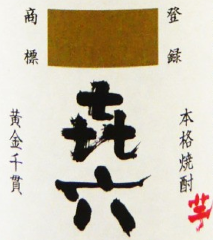 登録
商標
㐂六
本格焼酎
芋
黄金千貫